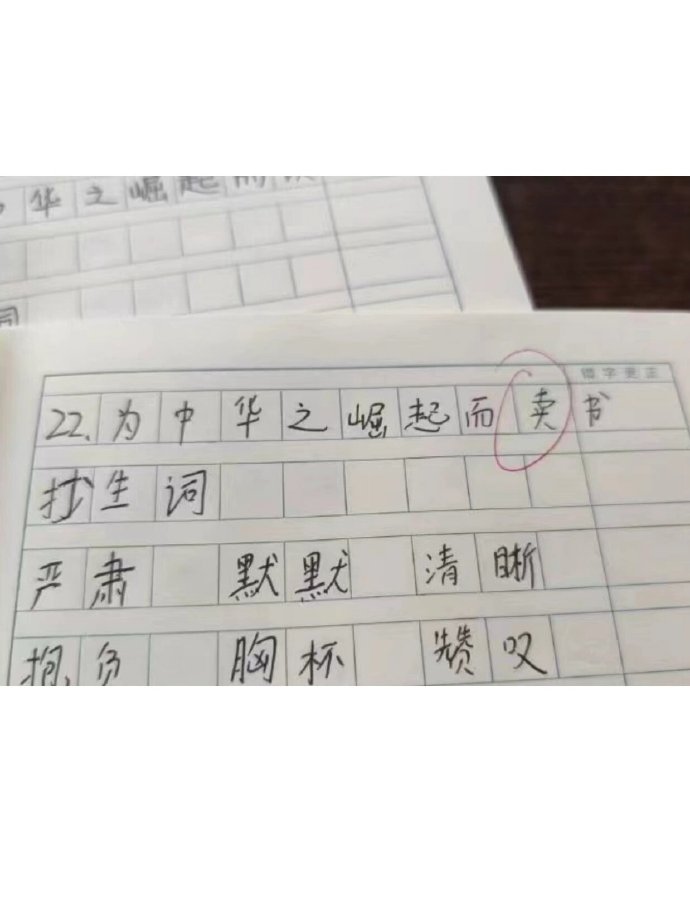 华之崛起而
词
错字更正
22.为中华之崛起而卖书
找生词
严肃 默默 清晰
抱负 胸杯 赞叹